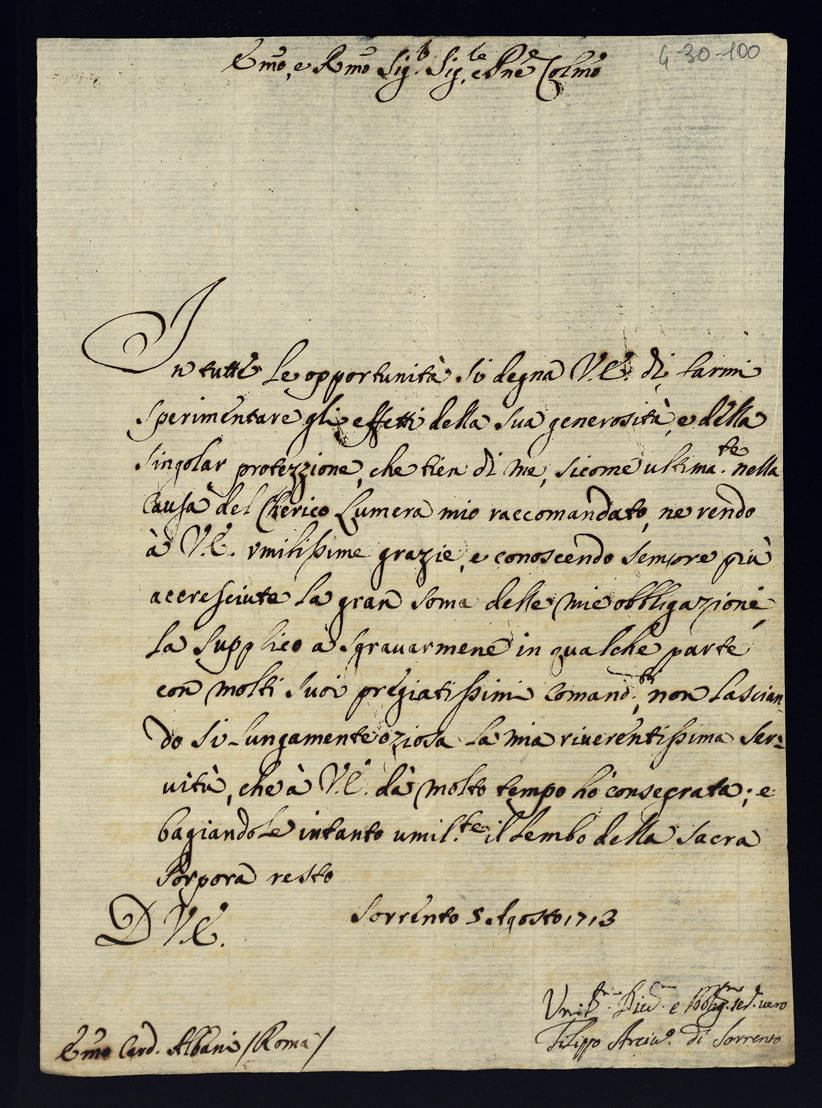 4-30-100
Emo, e Rmo Sig.r Sig.re e Pne Colmo
In tutte le opportunità si degna V.E. di farmi
sperimentare gli effetti della sua generosità, e della
singolar protezzione, che tien di me, sicome ultima.te nella
causa del Cherico Lumera mio raccomandato, ne rendo
à V.E. vmilissime grazie, e conoscendo sempre più
accresciuta la gran soma delle mie obbligazioni,
la supplico a sgravarmene in qualche parte
con molti suoi pregiatissimi comand.ti, non lascian
do si lungamente oziosa la mia riuerentissima ser=
uitù, che à V.E. dà molto tempo hò consegrata; e
bagiandole intanto umil.te il lembo della sacra
Porpora resto
D V.E. Sorrento 5 Agosto 1713
e Obblig. ser. vero
Filippo Arciu.o di Sorrento
Emo Card. Albani /Roma/